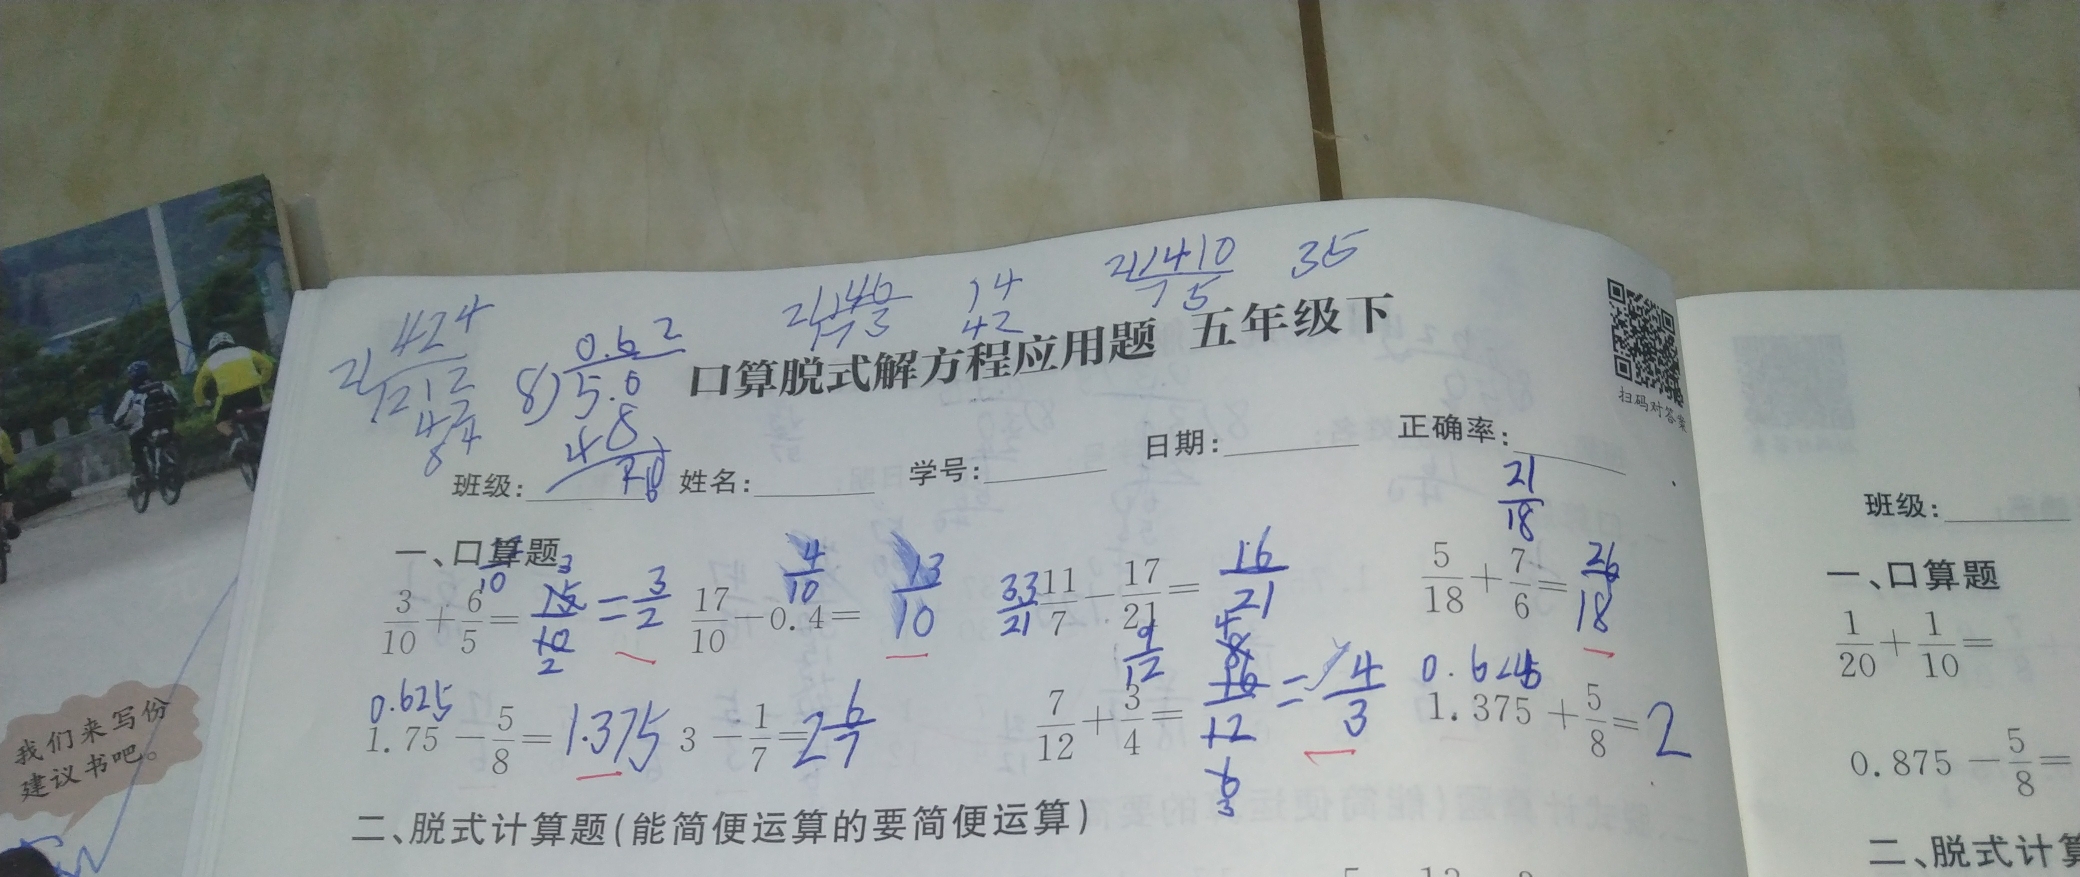 424
2)1212
42
84
0.62
8)5.0
48
20
14
42
35
口算脱式解方程应用题 五年级下
扫码对答案
班级: 姓名: 学号: 日期: 正确率:
一、口算题
3/10 + 6/5 = 15/10 = 3/2
17/10 - 0.4 = 13/10
4/10
33/21
11/7 - 17/21 = 16/21
21/18
5/18 + 7/6 = 26/18
0.625
1.75 - 5/8 = 1.375
3 - 1/7 = 2 6/7
9/12
7/12 + 3/4 = 16/12 = 4/3
1.375 + 5/8 = 2
二、脱式计算题(能简便运算的要简便运算)
我们来写份
建议书吧。
班级:
一、口算题
1/20 + 1/10 =
0.875 - 5/8 =
二、脱式计算